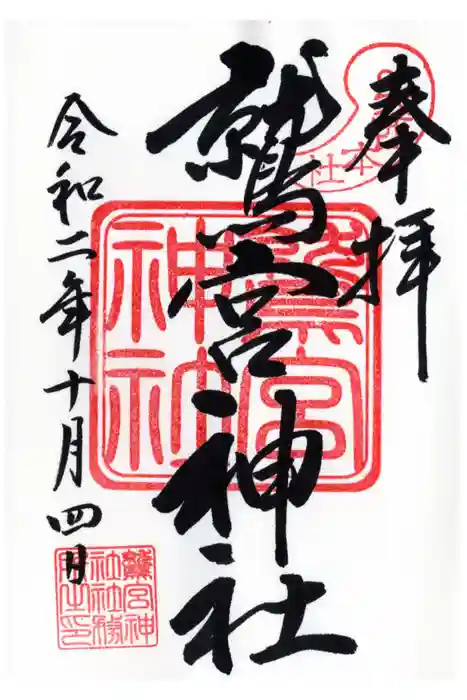 奉拝
鷲宮神社
令和二年十月四日
鷲宮神社
鷲宮神社社務所之印
本社